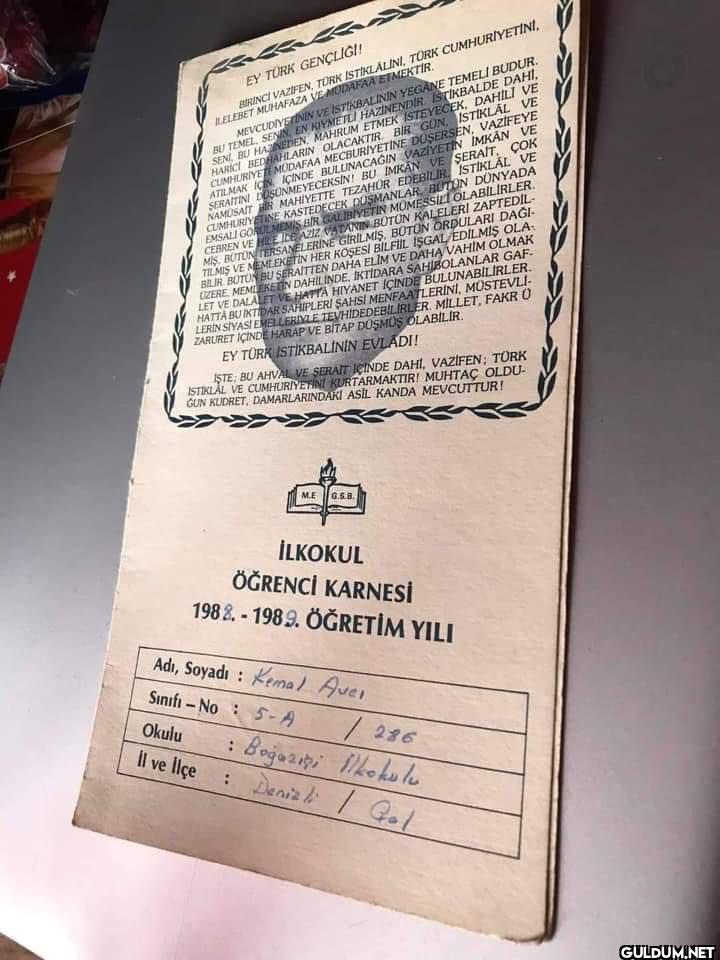 EY TÜRK GENÇLİĞİ!
BİRİNCİ VAZİFEN, TÜRK İSTİKLÂLİNİ, TÜRK CUMHURİYETİNİ,
İLELEBET MUHAFAZA VE MÜDAFAA ETMEKTİR.
MEVCUDİYETİNİN VE İSTİKBALİNİN YEGÂNE TEMELİ BUDUR.
BU TEMEL, SENİN, EN KIYMETLİ HAZİNENDİR. İSTİKBALDE DAHİ,
SENİ, BU HAZİNEDEN, MAHRUM ETMEK İSTEYECEK, DAHİLÎ VE
HARİCÎ BEDHAHLARIN OLACAKTIR. BİR GÜN, İSTİKLÂL VE
CUMHURİYETİ MÜDAFAA MECBURİYETİNE DÜŞERSEN, VAZİFEYE
ATILMAK İÇİN, İÇİNDE BULUNACAĞIN VAZİYETİN İMKÂN VE
ŞERAİTİNİ DÜŞÜNMEYECEKSİN! BU İMKÂN VE ŞERAİT, ÇOK
NAMÜSAİT BİR MAHİYETTE TEZAHÜR EDEBİLİR. İSTİKLÂL VE
CUMHURİYETİNE KASTEDECEK DÜŞMANLAR, BÜTÜN DÜNYADA
EMSALİ GÖRÜLMEMİŞ BİR GALİBİYETİN MÜMESSİLİ OLABİLİRLER.
CEBREN VE HİLE İLE AZİZ VATANIN BÜTÜN KALELERİ ZAPTEDİL-
MİŞ, BÜTÜN TERSANELERİNE GİRİLMİŞ, BÜTÜN ORDULARI DAĞI-
TILMIŞ VE MEMLEKETİN HER KÖŞESİ BİLFİİL İŞGAL EDİLMİŞ OLA-
BİLİR. BÜTÜN BU ŞERAİTTEN DAHA ELİM VE DAHA VAHİM OLMAK
ÜZERE, MEMLEKETİN DAHİLİNDE, İKTİDARA SAHİBOLANLAR GAF-
LET VE DALALET VE HATTÂ HIYANET İÇİNDE BULUNABİLİRLER.
HATTÂ BU İKTİDAR SAHİPLERİ ŞAHSÎ MENFAATLERİNİ, MÜSTEVLİ-
LERİN SİYASİ EMELLERİYLE TEVHİDEDEBİLİRLER. MİLLET, FAKR Ü
ZARURET İÇİNDE HARAP VE BİTAP DÜŞMÜŞ OLABİLİR.
EY TÜRK İSTİKBALİNİN EVLÂDI!
İŞTE; BU AHVAL VE ŞERAİT İÇİNDE DAHİ, VAZİFEN; TÜRK
İSTİKLÂL VE CUMHURİYETİNİ KURTARMAKTIR! MUHTAÇ OLDU-
ĞUN KUDRET, DAMARLARINDAKİ ASİL KANDA MEVCUTTUR!
M.E G.S.B.
İLKOKUL
ÖĞRENCİ KARNESİ
1988. - 1989. ÖĞRETİM YILI
Adı, Soyadı : Kemal Avcı
Sınıfı – No : 5-A / 286
Okulu : Boğaziçi İlkokulu
İl ve İlçe : Denizli / Çal
GULDUM.NET